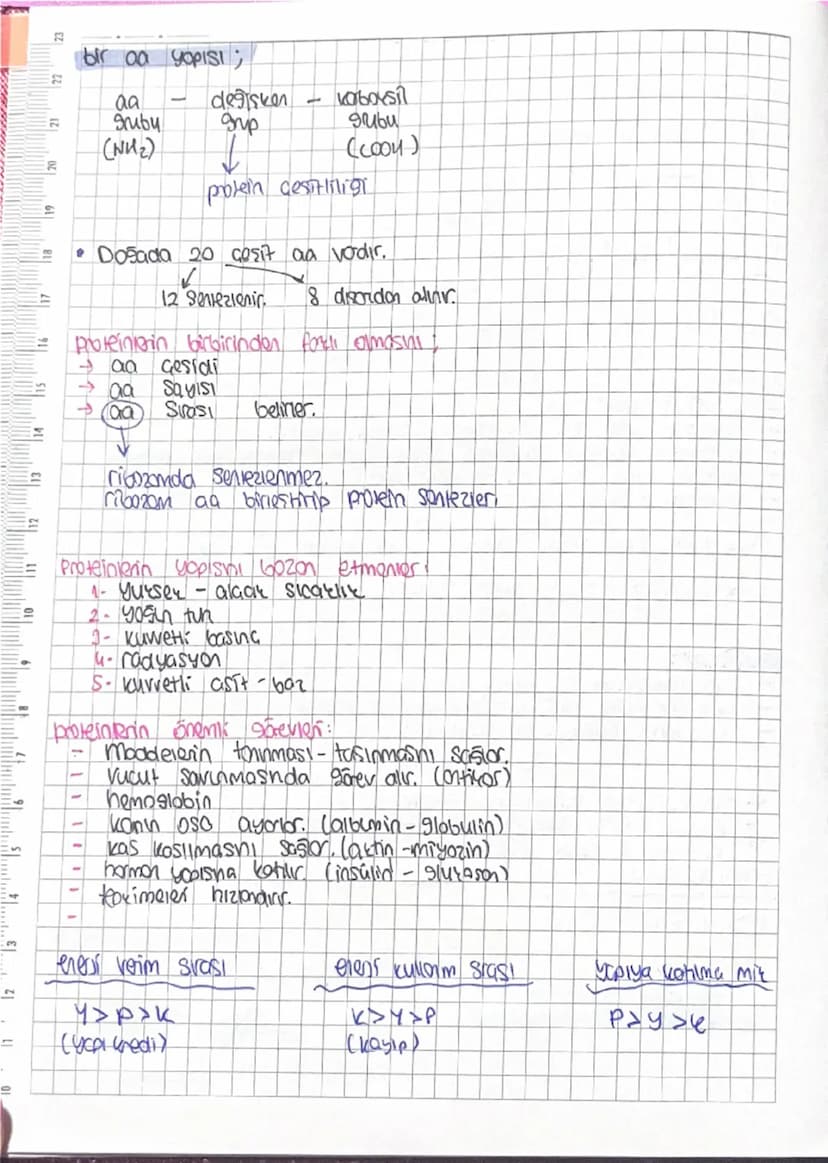 bir aa yapısı ;
aa – değişken – karboksil
grubu grup grubu
(NH2) (COOH)
protein çeşitliliği
• Doğada 20 çeşit aa vardır.
12 sentezlenir. 8 dışarıdan alınır.
proteinlerin birbirinden farklı olmasını ;
→ aa çeşidi
→ aa sayısı
→ aa sırası belirler.
ribozomda sentezlenmez.
ribozom aa birleştirip protein sentezler.
proteinlerin yapısını bozan etmenler:
1- yüksek – alçak sıcaklık
2- yoğun tuz
3- kuvvetli basınç
4- radyasyon
5- kuvvetli asit - baz
proteinlerin önemli görevleri:
- maddelerin tanınması - taşınmasını sağlar.
- vücut savunmasında görev alır. (antikor)
- hemoglobin
- kanın OSB ayarlar. (albumin - globulin)
- kas kasılmasını sağlar. (aktin - miyozin)
- hormon yapısına katılır (insülin - glukagon)
- hızlandırır.
-
enerji verim sırası enerji kullanım sırası yapıya katılma mik
Y>P>K K>Y>P P>Y>K
(yapı kredi) (kayıp)
23
22
21
20
19
18
17
16
15
14
13
12
11
10
9
8
7
6
5
4
3
2
1
0